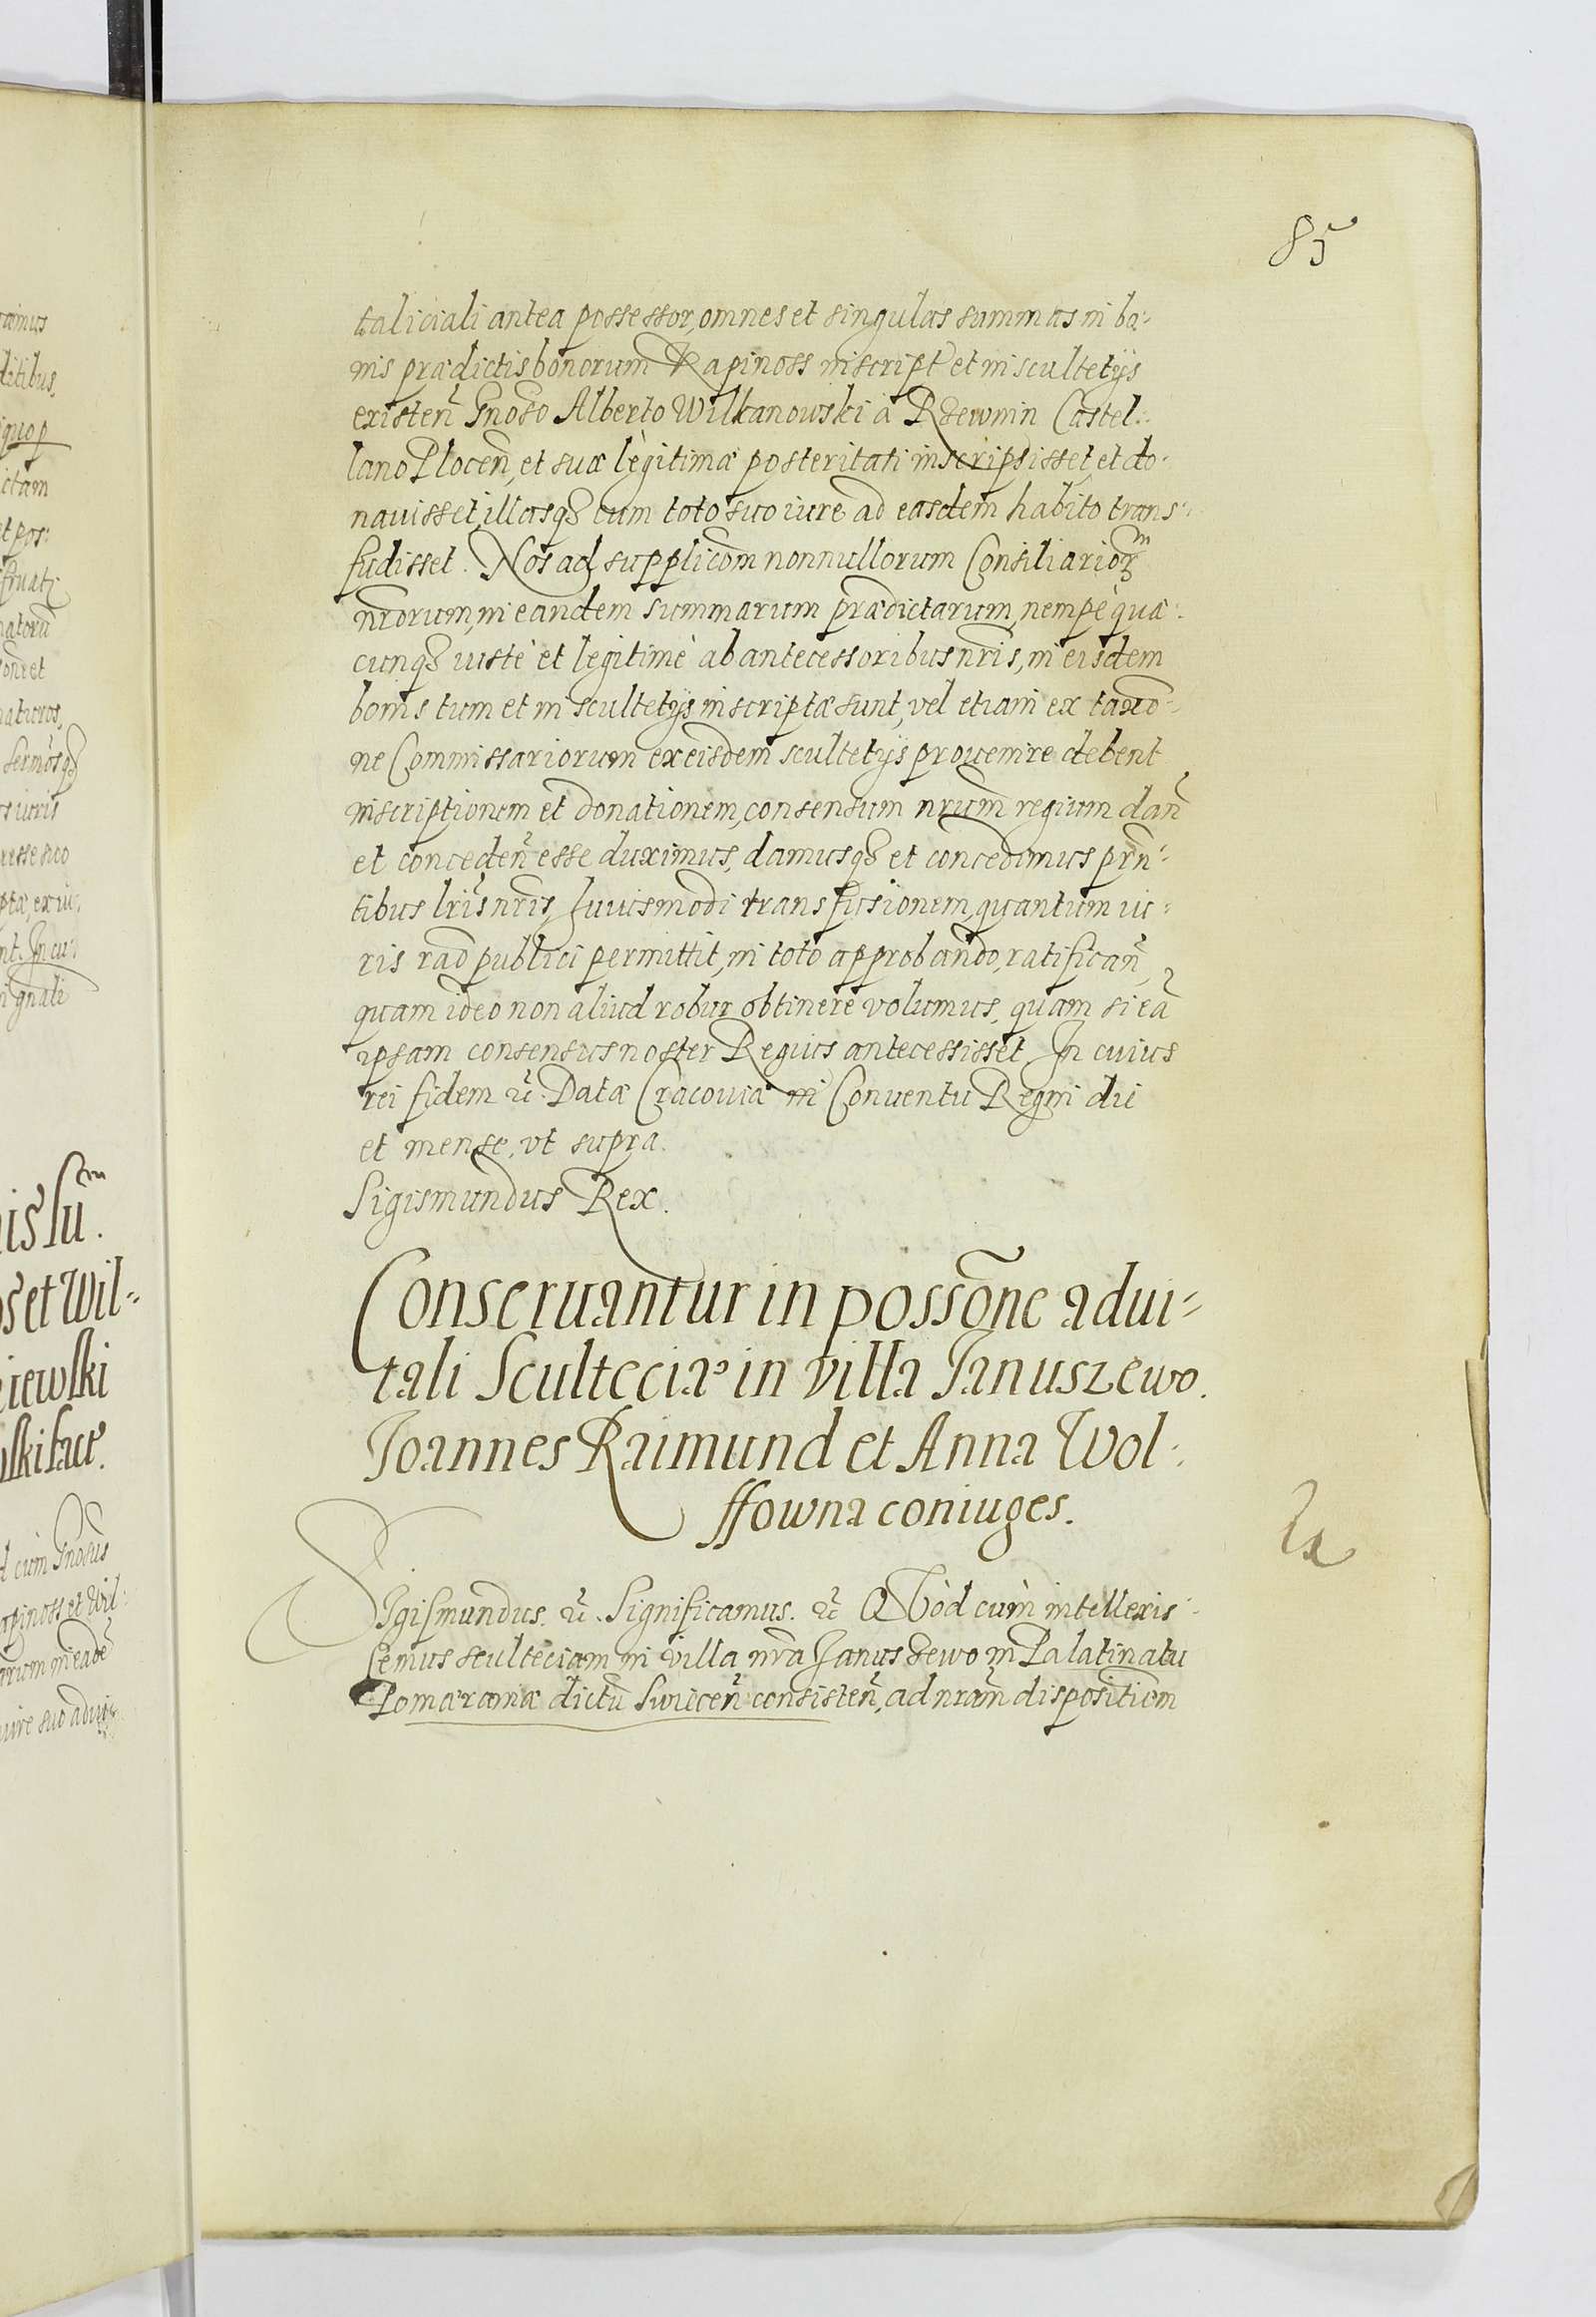 85
taliciali antea possessor, omnes et singulas summas in bo-
nis prædictis bonorum Rapinoss inscript et in scultetijs
existen̄ Gnoso Alberto Wilkanowski à Rdewnin Castel-
lano Plocen̄, et suæ lègitimæ posteritati inscripsisset et do-
nauisset, illasq3 cum toto suo iure ad easdem habito trans-
fudisset. Nos ad supplicōm nonnullorum Consiliarior̄m
nrōrum, in eandem summarum prædictarum, nempè quæ-
cunq3 iustè et legitimè ab antecessoribus nr̄is, in eisdem
bonis tum et in scultetijs inscriptæ sunt, vel etiam ex taxō-
ne Commissariorum ex eisdem scultetijs prouenire debent
inscriptionem et donationem, consensum nr̄um regium dan̄
et conceden̄ esse duximus, damusq3 et concedimus prn̄-
tibus lr̄is nr̄is, huiusmodi transfusionem, quantum iu-
ris rāō publici permittit, in toto approbando, ratifican̄,
quam ideo non aliud robur obtinere volumus, quam si eā
ipsam consensus noster Regius antecessisset. In cuius
rei fidem &c. Datæ Cracouiæ in Conuentu Regni die
et mense, vt supra.
Sigismundus Rex.
Conseruantur in possōne adui-
tali Sculteciæ in villa Januszewo.
Joannes Raimund et Anna Wol-
ffowna coniuges.
Sigismundus. &c. Significamus. &c. QVòd cùm intellexis-
semus sculteciam in villa nrā Janusdewo in Palatinatu
Pomæraniæ dictū Swicen̄ consisten̄, ad nrām dispositiōm